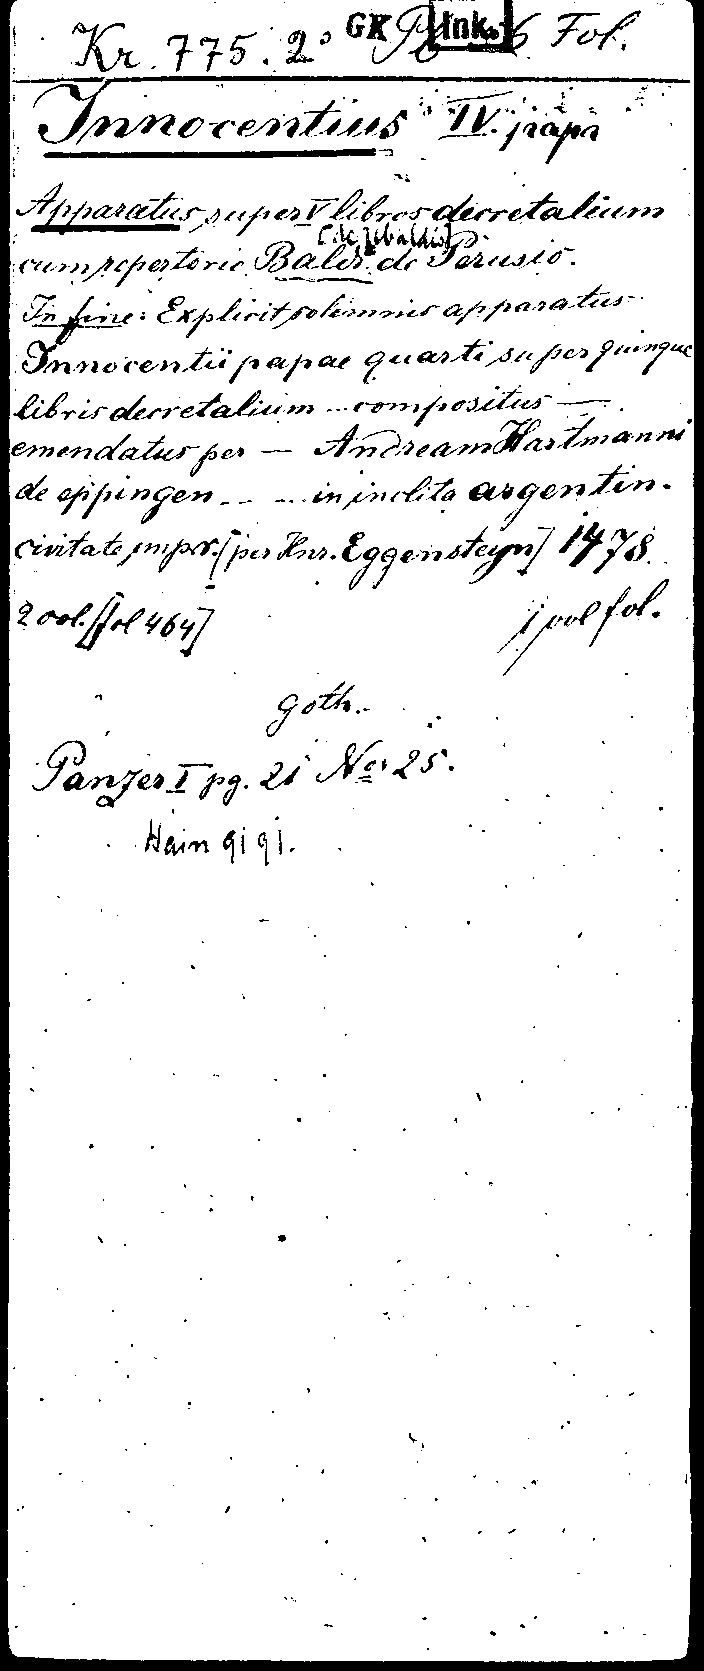 Kr. 775. 2° GK Ink. Fol.
Innocentius IV. papa
Apparatus super V libros decretalium
[de Ubaldis]
cum repertorio Baldi de Perusio.
In fine: Explicit solemnis apparatus
Innocentii papae quarti super quinque
libris decretalium -- compositus —
emendatus per — Andream Hartmanni
de eppingen -- -- in inclita argentin.
civitate impr. [per Hnr. Eggensteyn] 1478.
2 vol. [fol 464] 1 vol fol.
goth.
Panzer I pg. 21 No. 25.
Hain 9191.